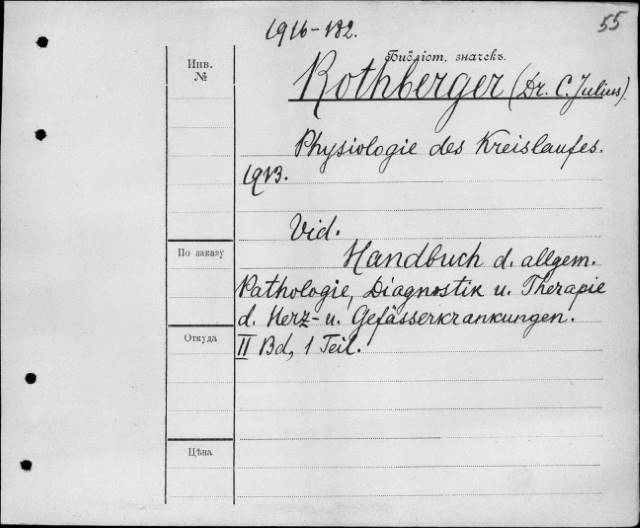 1916-132.
55
Библіот. значекъ.
Инв.
№
Rothberger (Dr. C. Julius).
Physiologie des Kreislaufes.
1913.
Vid.
По заказу
Handbuch d. allgem.
Pathologie, Diagnostik u. Therapie
d. Herz- u. Gefässerkrankungen.
Откуда
II Bd, 1 Teil.
Цѣна